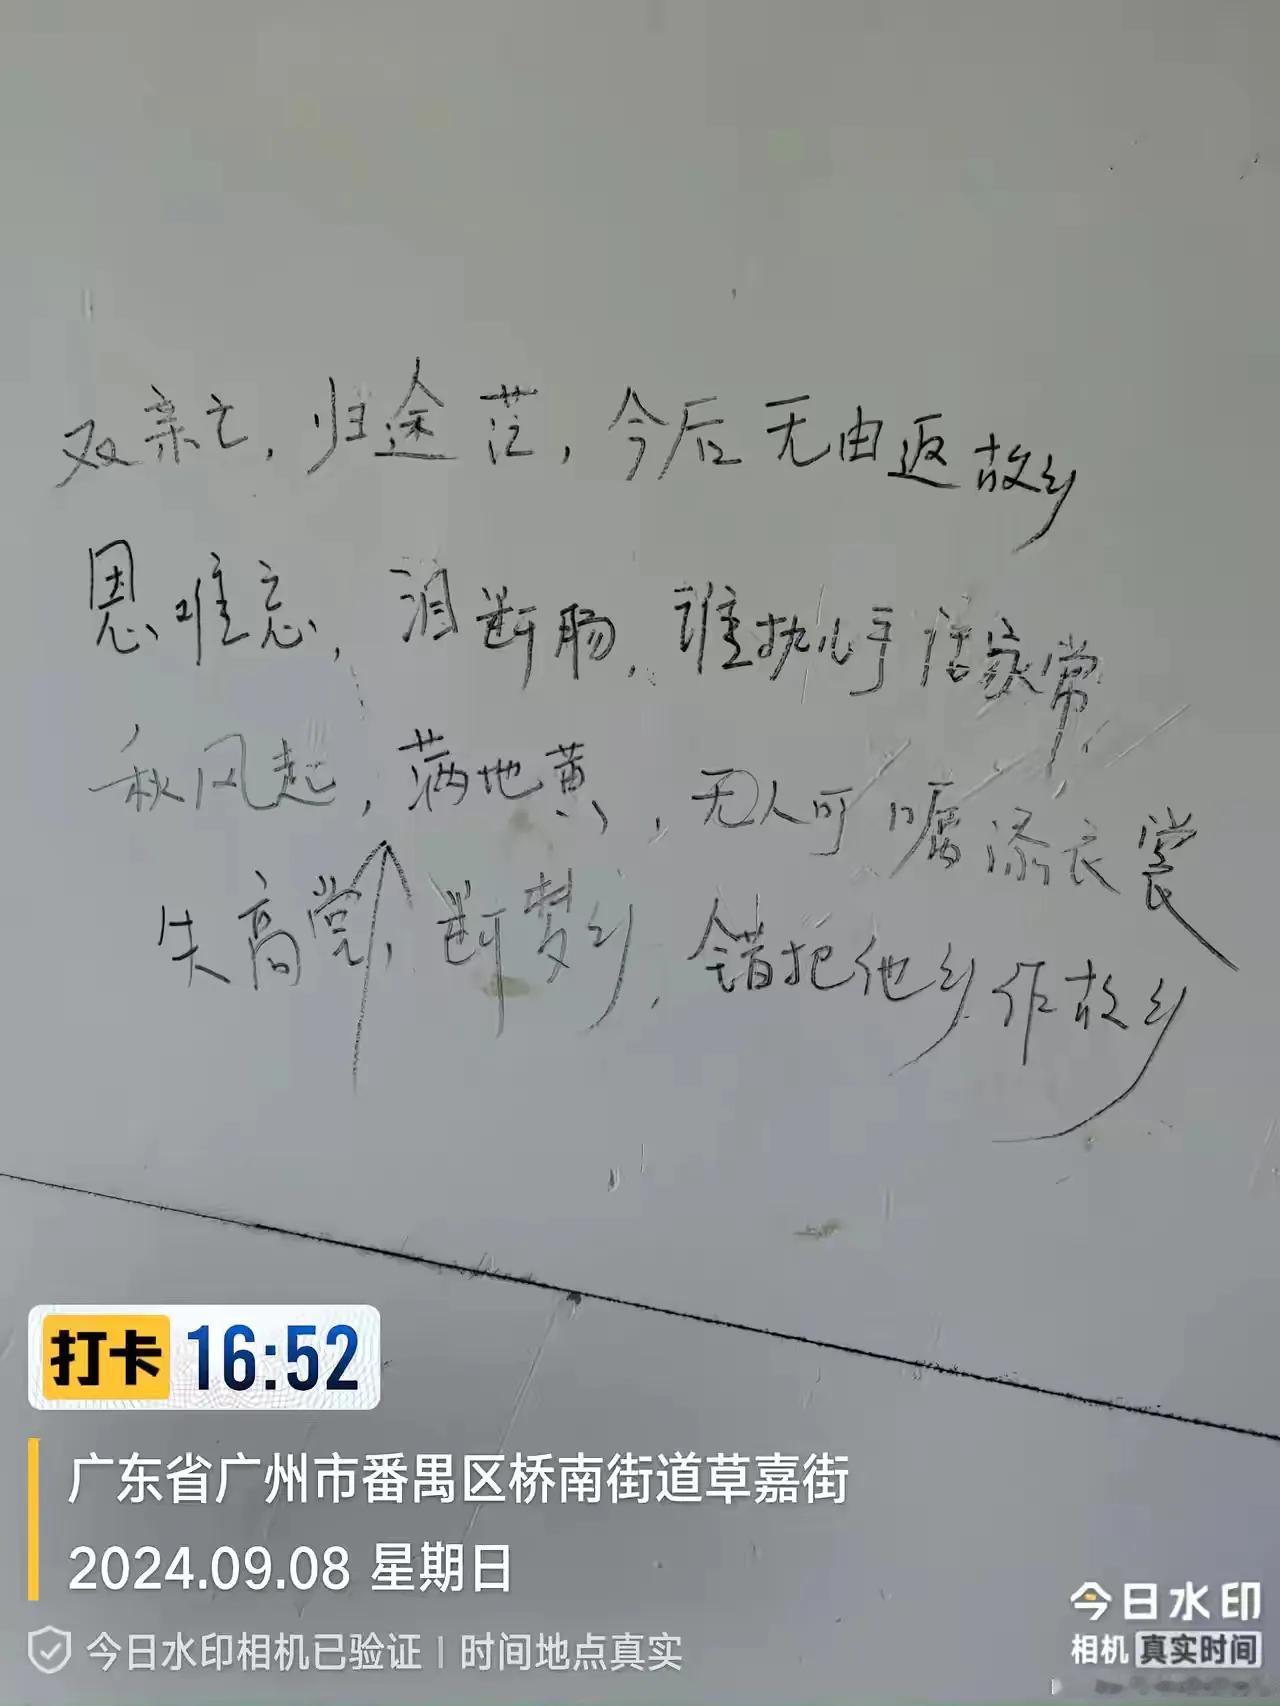 双亲亡,归途茫,今后无由返故乡
恩难忘,泪断肠,谁执儿手话家常
秋风起,满地黄,无人可嘱添衣裳
失高堂,断梦乡,错把他乡作故乡
打卡 16:52
广东省广州市番禺区桥南街道草嘉街
2024.09.08 星期日
今日水印相机已验证 | 时间地点真实
今日水印
相机 真实时间